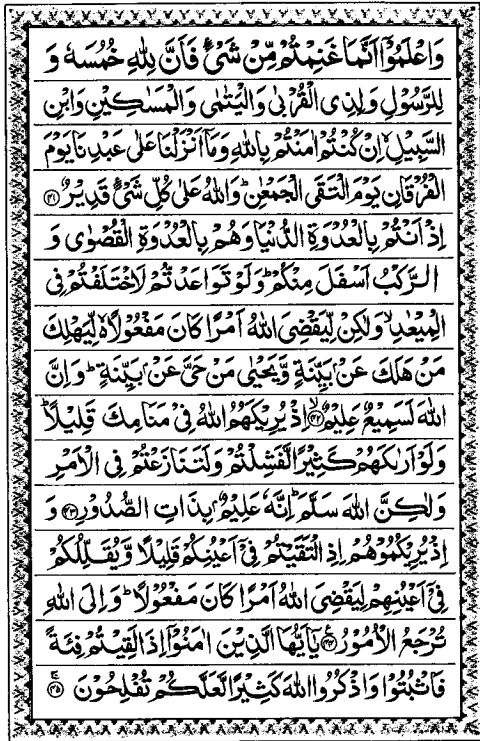 وَاعْلَمُوْٓا اَنَّمَا غَنِمْتُمْ مِّنْ شَیْءٍ فَاَنَّ لِلّٰهِ خُمُسَهٗ وَ
لِلرَّسُوْلِ وَلِذِی الْقُرْبٰی وَالْیَتٰمٰی وَالْمَسٰكِیْنِ وَابْنِ
السَّبِیْلِ ۙ اِنْ كُنْتُمْ اٰمَنْتُمْ بِاللّٰهِ وَمَاۤ اَنْزَلْنَا عَلٰی عَبْدِنَا یَوْمَ
الْفُرْقَانِ یَوْمَ الْتَقَی الْجَمْعٰنِ ؕ وَاللّٰهُ عَلٰی كُلِّ شَیْءٍ قَدِیْرٌ ﴿۴۱﴾
اِذْ اَنْتُمْ بِالْعُدْوَةِ الدُّنْیَا وَهُمْ بِالْعُدْوَةِ الْقُصْوٰی وَ
الرَّكْبُ اَسْفَلَ مِنْكُمْ ؕ وَلَوْ تَوَاعَدْتُّمْ لَاخْتَلَفْتُمْ فِی
الْمِیْعٰدِ ۙ وَلٰكِنْ لِّیَقْضِیَ اللّٰهُ اَمْرًا كَانَ مَفْعُوْلًا ۙ لِّیَهْلِكَ
مَنْ هَلَكَ عَنْۢ بَیِّنَةٍ وَّیَحْیٰی مَنْ حَیَّ عَنْۢ بَیِّنَةٍ ؕ وَاِنَّ
اللّٰهَ لَسَمِیْعٌ عَلِیْمٌ ﴿۴۲﴾ ۙ اِذْ یُرِیْكَهُمُ اللّٰهُ فِیْ مَنَامِكَ قَلِیْلًا ؕ
وَلَوْ اَرٰىكَهُمْ كَثِیْرًا لَّفَشِلْتُمْ وَلَتَنَازَعْتُمْ فِی الْاَمْرِ
وَلٰكِنَّ اللّٰهَ سَلَّمَ ؕ اِنَّهٗ عَلِیْمٌۢ بِذَاتِ الصُّدُوْرِ ﴿۴۳﴾ وَ
اِذْ یُرِیْكُمُوْهُمْ اِذِ الْتَقَیْتُمْ فِیْۤ اَعْیُنِكُمْ قَلِیْلًا وَّیُقَلِّلُكُمْ
فِیْۤ اَعْیُنِهِمْ لِیَقْضِیَ اللّٰهُ اَمْرًا كَانَ مَفْعُوْلًا ؕ وَاِلَی اللّٰهِ
تُرْجَعُ الْاُمُوْرُ ﴿۴۴﴾ ع یٰۤاَیُّهَا الَّذِیْنَ اٰمَنُوْۤا اِذَا لَقِیْتُمْ فِئَةً
فَاثْبُتُوْا وَاذْكُرُوا اللّٰهَ كَثِیْرًا لَّعَلَّكُمْ تُفْلِحُوْنَ ﴿۴۵﴾ ج